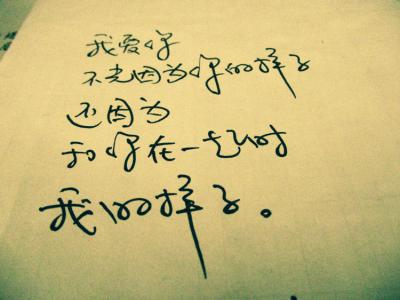 我爱你
不光因为你的样子
还因为
和你在一起时
我的样子。